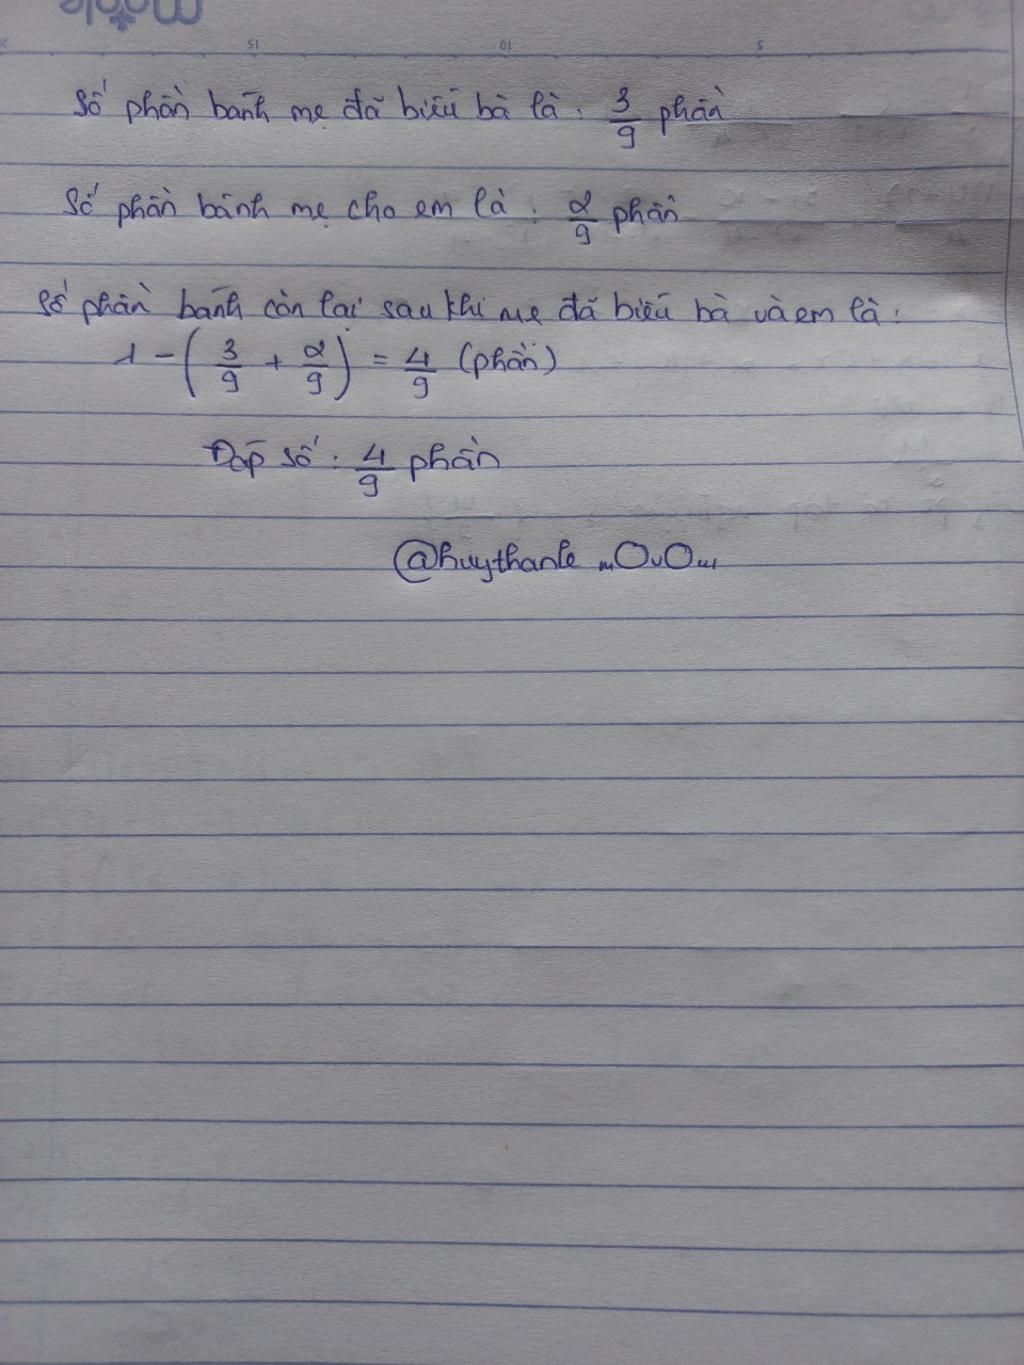 mogole
15 10 5
Số phần bánh mẹ đã biếu bà là: 3/9 phần
Số phần bánh mẹ cho em là: 2/9 phần
Số phần bánh còn lại sau khi mẹ đã biếu bà và em là:
1 - (3/9 + 2/9) = 4/9 (phần)
Đáp số: 4/9 phần
@huythanle mOvOm